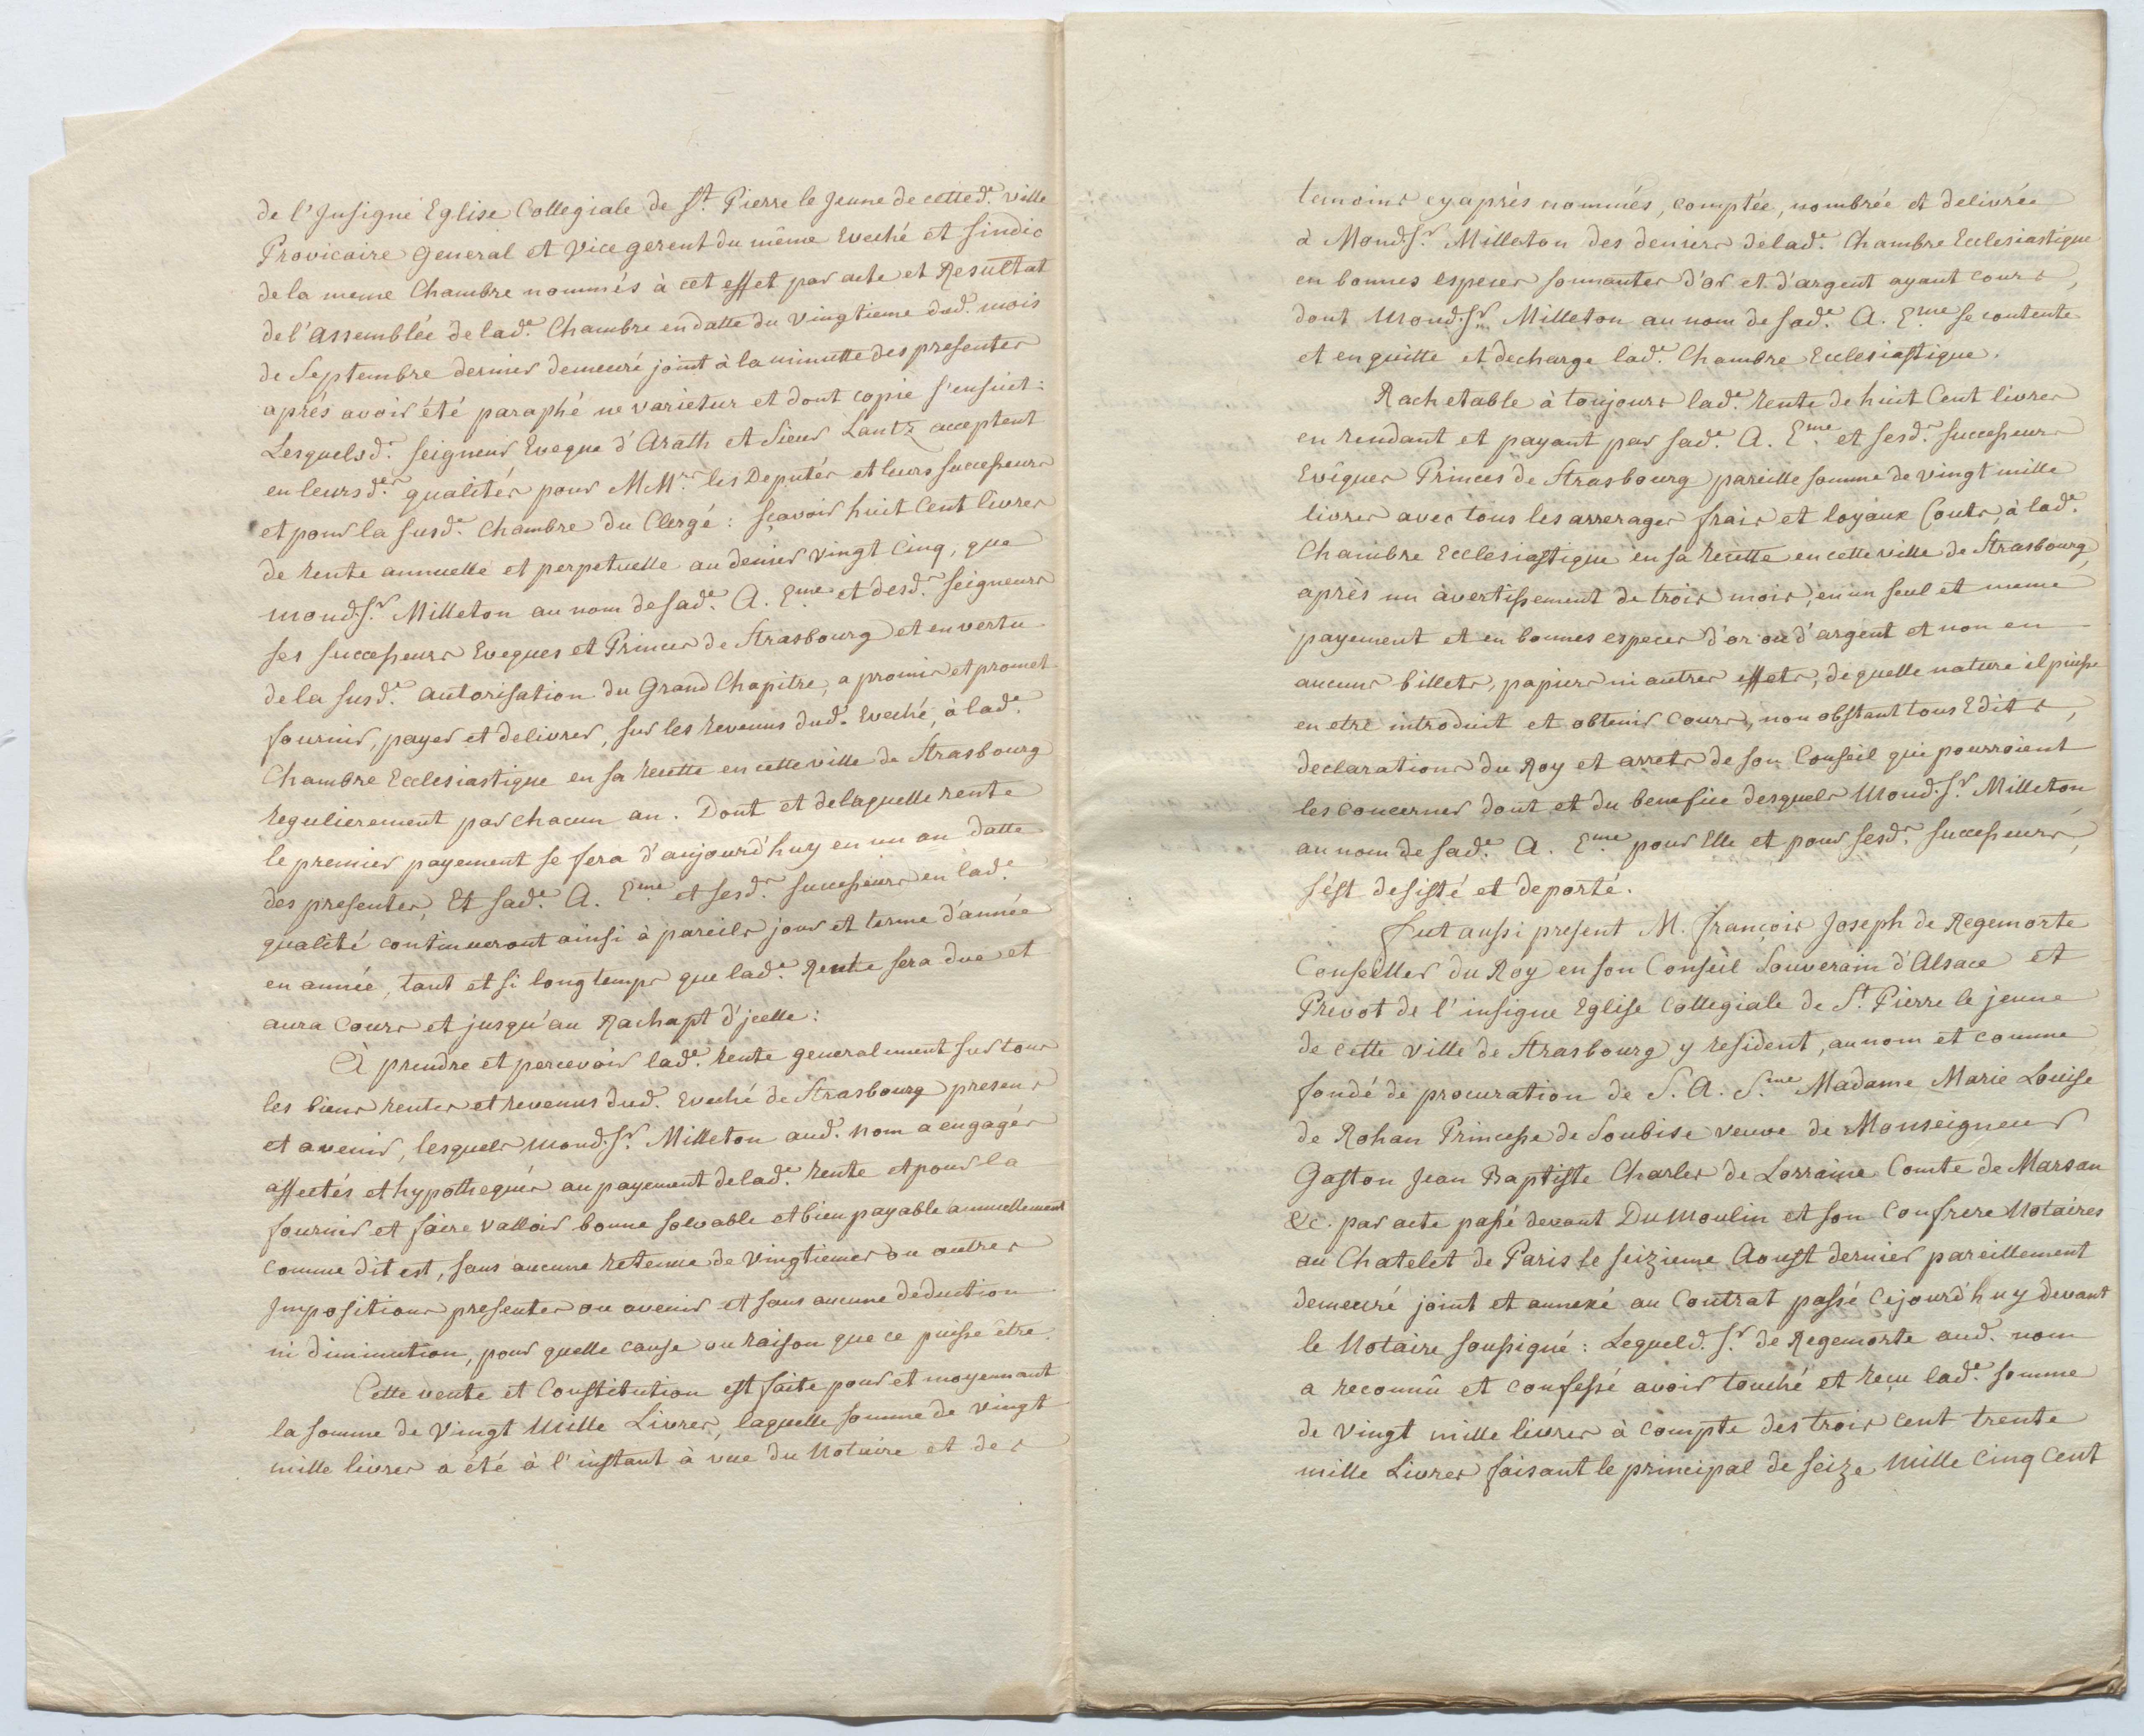 de l'Insigne Eglise Collegiale de St. Pierre le Jeune de cetted.e ville
Provicaire General et Vicegerent du même Eveché et sindic
de la meme Chambre nommés à cet effet par acte et Resultat
de l'assemblée de lad.e Chambre en datte du vingtieme dud. mois
de Septembre dernier demeuré joint à la minutte des presentes
après avoir été paraphé ne varietur et dont copie s'ensuit:
Lesquelsd.s seigneur Eveque d'Arath et Sieur Lantz acceptent
en leursd.es qualités pour MM.rs les Deputés et leurs successeurs
et pour la susd.e Chambre du Clergé: sçavoir huit Cent livres
de rente annuelle et perpetuelle au denier vingt Cinq, que
mond. S.r Milleton au nom de sad.e A. E.me et desd.s seigneurs
ses successeurs Eveques et Princes de Strasbourg et en vertu
de la susd.e autorisation du Grand Chapitre, a promis et promet
fournir, payer et delivrer, sur les revenus dud. Eveché, à lad.e
Chambre Ecclesiastique en sa recette en cette ville de Strasbourg
regulierement par chacun an. Dont et de laquelle rente
le premier payement se fera d'aujourd'huy en un an datte
des presentes, Et sad.e A. E.me et sesd.s successeurs en lad.e
qualité continueront ainsi à pareils jour et terme d'année
en année, tant et si longtemps que lad.e Rente sera due et
aura Cours et jusqu'au Rachapt d'jcelle:
À prendre et percevoir lad.e rente generalement sur tous
les biens rentes et revenus dud. Eveché de Strasbourg presens
et avenir, lesquels mond. S.r Milleton aud. nom a engagés
affectés et hypothequés au payement de lad.e rente et pour la
fournir et faire valloir bonne solvable et bien payable annuellement
comme dit est, sans aucune retenue de vingtiemes ou autres
Impositions presentes ou avenir et sans aucune deduction
ni diminution, pour quelle cause ou raison que ce puisse être.
Cette vente et Constitution est faite pour et moyennant
la somme de Vingt Mille Livres, laquelle somme de vingt
mille livres a été à l'instant à vue du Notaire et des
temoins cy après nommés, comptée, nombrée et delivrée
à Mond. S.r Milleton des deniers de lad.e Chambre Ecclesiastique
en bonnes especes sonnantes d'or et d'argent ayant cours,
dont Mond. S.r Milleton au nom de sad.e A. E.me se contente
et en quitte et decharge lad.e Chambre Ecclesiastique.
Rachetable à toujours lad.e rente de huit Cent livres
en rendant et payant par sad.e A. E.me et sesd.s successeurs
Evêques Princes de Strasbourg pareille somme de vingt mille
livres avec tous les arrerages frais et loyaux Couts, à lad.e
Chambre Ecclesiastique en sa recette en cette ville de Strasbourg,
après un avertissement de trois mois, en un seul et meme
payement et en bonnes especes d'or ou d'argent et non en
aucuns billets, papiers ni autres effets, de quelle nature il puisse
en etre introduit et obtenir cours, non obstant tous Edits,
declarations du Roy et arrets de son Conseil qui pourroient
les concerner dont et du benefice desquels Mond. S.r Milleton
au nom de sad.e A. E.me pour Elle et pour sesd.s successeurs,
s'est desisté et deporté.
Fut aussi present M. François Joseph de Regemorte
Conseiller du Roy en son Conseil Souverain d'Alsace et
Prevot de l'insigne Eglise Collegiale de St. Pierre le jeune
de cette ville de Strasbourg y resident, au nom et comme
fondé de procuration de S. A. S.me Madame Marie Louise
de Rohan Princesse de Soubise veuve de Monseigneur
Gaston Jean Baptiste Charles de Lorraine Comte de Marsan
&c. par acte passé devant Du Moulin et son Confrere Notaires
au Chatelet de Paris le seizieme Aoust dernier pareillement
demeuré joint et annexé au Contrat passé cejourd'huy devant
le Notaire soussigné: Lequeld. S.r de Regemorte aud. nom
a reconnû et confessé avoir touché et reçu lad.e somme
de vingt mille livres à compte des trois cent trente
mille Livres faisant le principal de seize Mille Cinq Cent